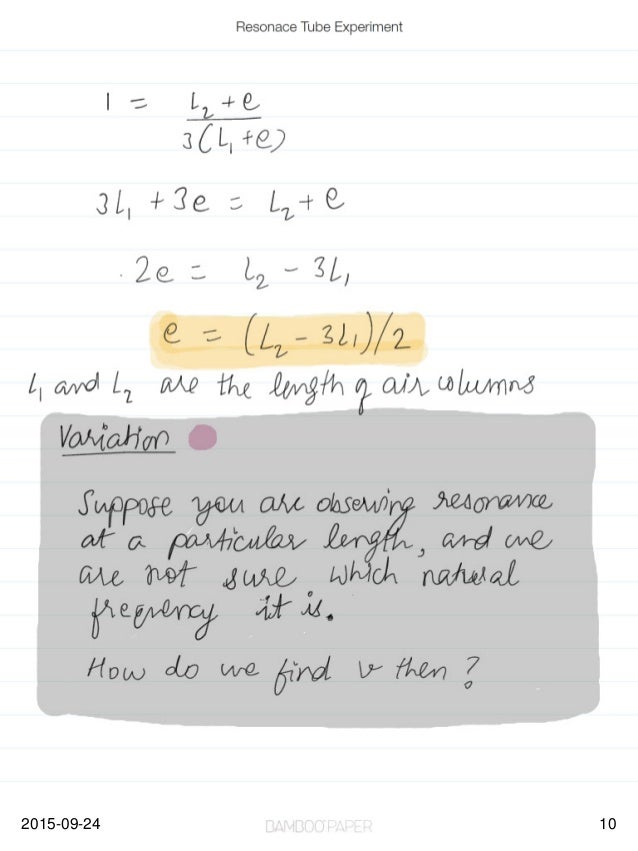 Resonace Tube Experiment
1 = L₂ + e / 3(L₁ + e)
3L₁ + 3e = L₂ + e
2e = L₂ - 3L₁
e = (L₂ - 3L₁)/2
L₁ and L₂ are the length of air columns
Variation
Suppose you are observing resonance
at a particular length, and we
are not sure which natural
frequency it is.
How do we find v then?
2015-09-24
BAMBOO PAPER
10